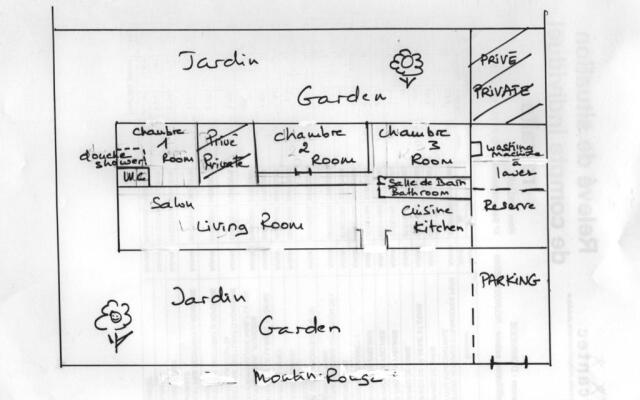 Jardin
Garden
PRIVÉ
PRIVATE
Chambre
1
Room
Privé
Private
Chambre
2
Room
Chambre
3
Room
douche
shower
W.C
washing
machine
à
laver
Salle de Bain
Bathroom
Salon
Living Room
Cuisine
Kitchen
Reserve
Jardin
Garden
PARKING
Moulin-Rouge
Relevé de situation
de compte individuel